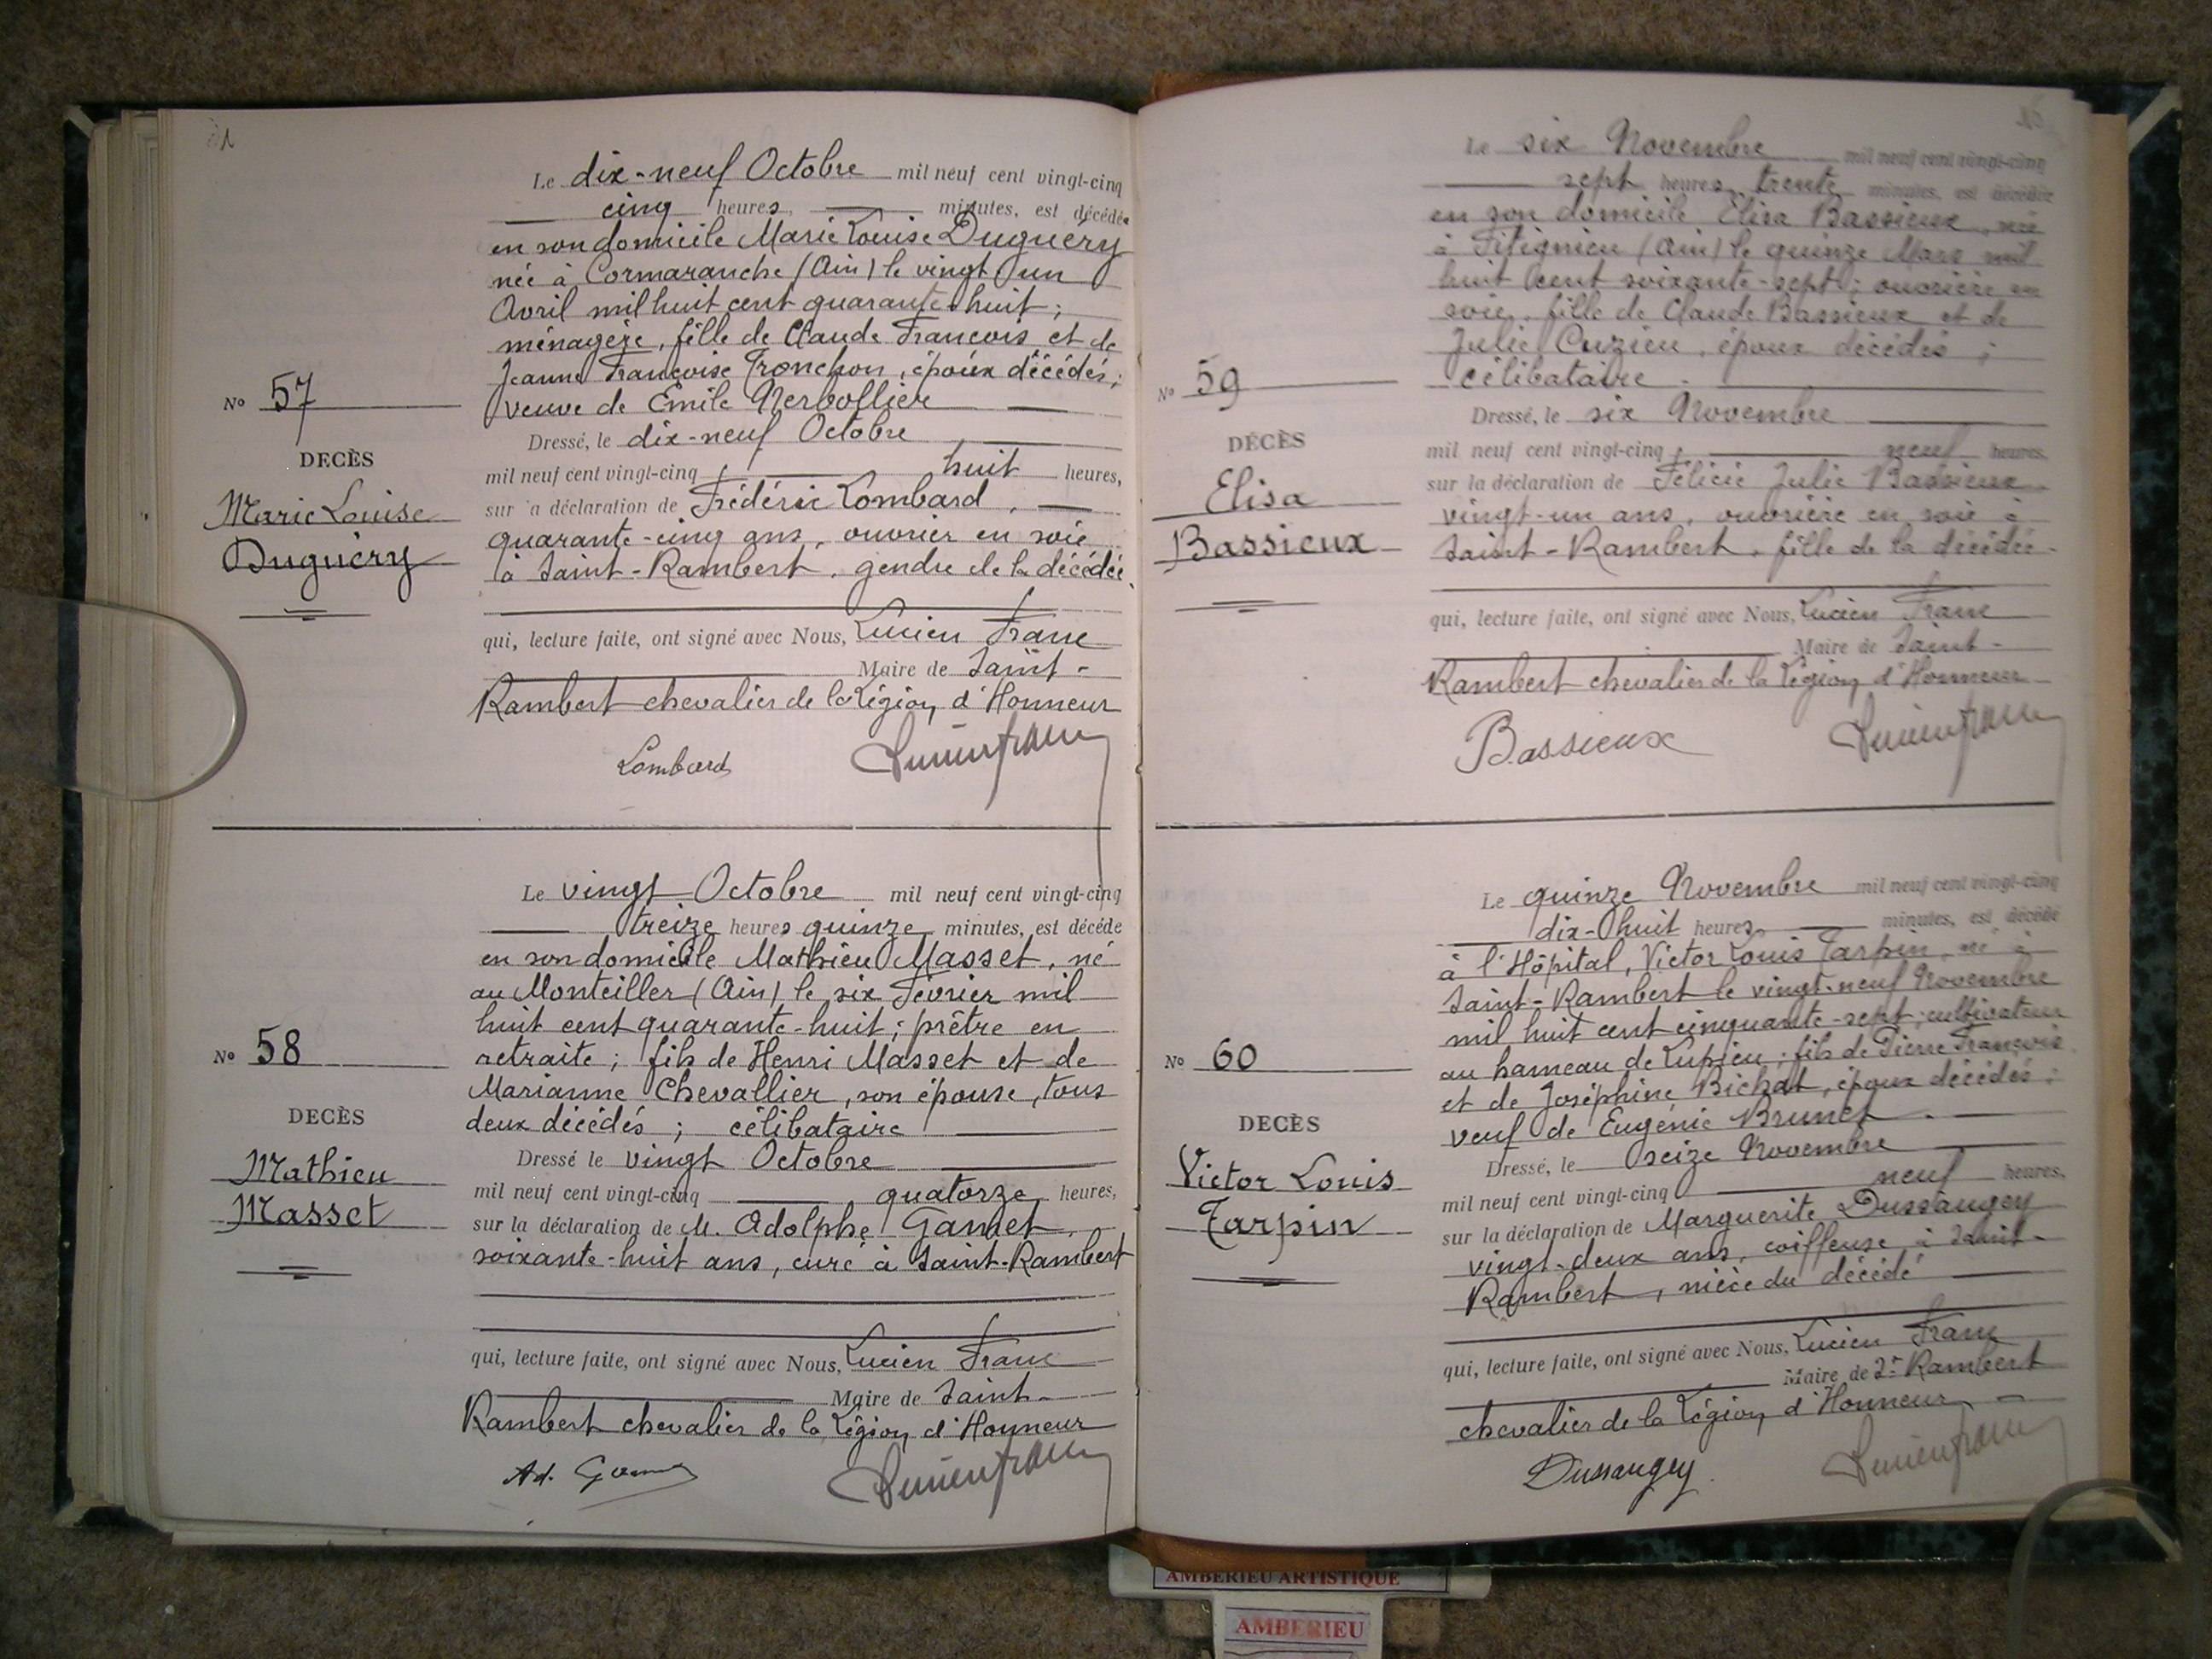 Le dix-neuf Octobre mil neuf cent vingt-cinq
cinq heures, minutes, est décédée
en son domicile Marie Louise Duguéry
née à Cormaranche (Ain) le vingt un
Avril mil huit cent quarante huit;
ménagère, fille de Claude François et de
Jeanne Françoise Tronchon, époux décédés;
veuve de Emile
No 57
Dressé, le dix-neuf Octobre
mil neuf cent vingt-cinq, huit heures,
DECÈS
Marie Louise
Duguéry
sur la déclaration de Frédéric Lombard,
quarante-cinq ans, ouvrier en soie
à Saint-Rambert, gendre de la décédée.
qui, lecture faite, ont signé avec Nous, Lucien Franc
Maire de Saint-
Rambert chevalier de la Légion d'Honneur
Lombard
Lucien Franc
Le vingt Octobre mil neuf cent vingt-cinq
treize heures quinze minutes, est décédé
en son domicile Mathieu Masset, né
au Monteiller (Ain), le six Février mil
huit cent quarante-huit; prêtre en
No 58
retraite; fils de Henri Masset et de
Marianne Chevallier, son épouse, tous
deux décédés; célibataire
DECÈS
Mathieu
Masset
Dressé le vingt Octobre
mil neuf cent vingt-cinq quatorze heures,
sur la déclaration de M. Adolphe
soixante-huit ans, curé à Saint-Rambert
qui, lecture faite, ont signé avec Nous, Lucien Franc
Maire de Saint-
Rambert chevalier de la Légion d'Honneur
Ad.
Lucien Franc
Le six Novembre mil neuf cent vingt-cinq
sept heures, trente minutes, est décédée
en son domicile Elisa Bassieux, née
à (Ain) le quinze Mars mil
huit cent soixante-sept; ouvrière en
soie, fille de Claude Bassieux et de
Julie Cuzieu, époux décédés;
célibataire.
No 59
Dressé, le six Novembre
mil neuf cent vingt-cinq, neuf heures,
DÉCÈS
Elisa
Bassieux
sur la déclaration de Félicie Julie Bassieux
vingt-un ans, ouvrière en soie à
Saint-Rambert, fille de la décédée.
qui, lecture faite, ont signé avec Nous, Lucien Franc
Maire de Saint-
Rambert chevalier de la Légion d'Honneur
Bassieux
Lucien Franc
Le quinze Novembre mil neuf cent vingt-cinq
dix-huit heures, minutes, est décédé
à l'Hôpital, Victor Louis Tarpin, né à
Saint-Rambert le vingt-neuf Novembre
mil huit cent cinquante-sept; cultivateur
au hameau de Lupieu; fils de Pierre François
et de Joséphine Bichat, époux décédés;
veuf de Eugénie Brunet.
No 60
DECÈS
Victor Louis
Tarpin
Dressé, le seize Novembre
mil neuf cent vingt-cinq neuf heures,
sur la déclaration de Marguerite Dussaugey
vingt-deux ans, coiffeuse à Saint-
Rambert, nièce du décédé
qui, lecture faite, ont signé avec Nous, Lucien Franc
Maire de St-Rambert
chevalier de la Légion d'Honneur
Dussaugey.
Lucien Franc
AMBERIEU ARTISTIQUE
AMBERIEU